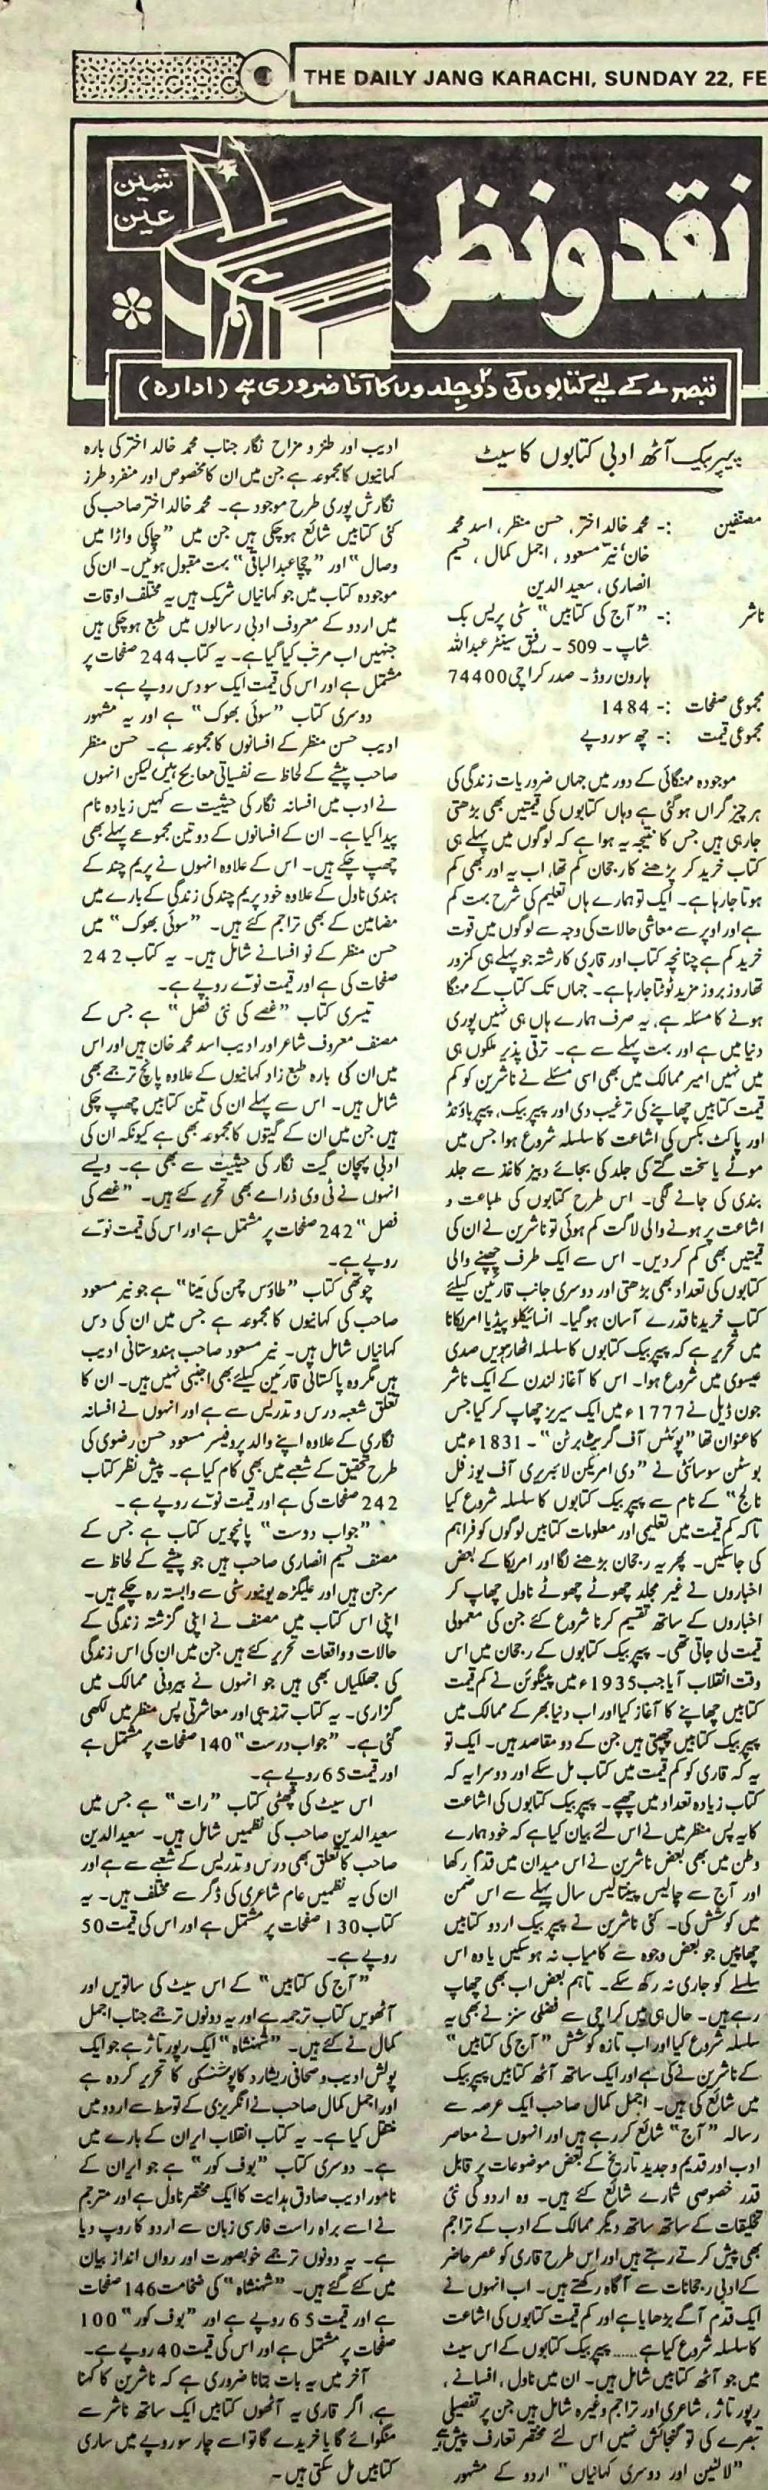 THE DAILY JANG KARACHI, SUNDAY 22, FE
شین
عین
نقد و نظر
تبصرے کے لیے کتابوں کی دو جلدوں کا آنا ضروری ہے (ادارہ)
پیپر بیک آٹھ ادبی کتابوں کا سیٹ
مصنفین :- محمد خالد اختر، حسن منظر، اسد محمد
خان، نیّر مسعود، اجمل کمال، نسیم
انصاری، سعید الدین
ناشر :- "آج کی کتابیں" سٹی پریس بک
شاپ - 509 - رفیق سینٹر عبداللہ
ہارون روڈ - صدر کراچی 74400
مجموعی صفحات :- 1484
مجموعی قیمت :- چھ سو روپے
موجودہ مہنگائی کے دور میں جہاں ضروریات زندگی کی
ہر چیز گراں ہوگئی ہے وہاں کتابوں کی قیمتیں بھی بڑھتی
جارہی ہیں جس کا نتیجہ یہ ہوا ہے کہ لوگوں میں پہلے ہی
کتاب خرید کر پڑھنے کا رجحان کم تھا، اب یہ اور بھی کم
ہوتا جارہا ہے۔ ایک تو ہمارے ہاں تعلیم کی شرح بہت کم
ہے اور اوپر سے معاشی حالات کی وجہ سے لوگوں میں قوت
خرید کم ہے چنانچہ کتاب اور قاری کا رشتہ جو پہلے ہی کمزور
تھا روز بروز مزید ٹوٹتا جارہا ہے۔ جہاں تک کتاب کے مہنگا
ہونے کا مسئلہ ہے، یہ صرف ہمارے ہاں ہی نہیں پوری
دنیا میں ہے اور بہت پہلے سے ہے۔ ترقی پذیر ملکوں ہی
میں نہیں امیر ممالک میں بھی اسی مسئلے نے ناشرین کو کم
قیمت کتابیں چھاپنے کی ترغیب دی اور پیپر بیک، پیپر باؤنڈ
اور پاکٹ بکس کی اشاعت کا سلسلہ شروع ہوا جس میں
موٹے یا سخت گتے کی جلد کی بجائے دبیز کاغذ سے جلد
بندی کی جانے لگی۔ اس طرح کتابوں کی طباعت و
اشاعت پر ہونے والی لاگت کم ہوئی تو ناشرین نے ان کی
قیمتیں بھی کم کردیں۔ اس سے ایک طرف چھپنے والی
کتابوں کی تعداد بھی بڑھتی اور دوسری جانب قارئین کیلئے
کتاب خریدنا قدرے آسان ہوگیا۔ انسائیکلوپیڈیا امریکانا
میں تحریر ہے کہ پیپر بیک کتابوں کا سلسلہ اٹھارہویں صدی
عیسوی میں شروع ہوا۔ اس کا آغاز لندن کے ایک ناشر
جون ڈیل نے 1777ء میں ایک سیریز چھاپ کر کیا جس
کا عنوان تھا "پوئٹس آف گریٹ برٹن" - 1831ء میں
بوسٹن سوسائٹی نے "دی امریکن لائبریری آف یوزفل
نالج" کے نام سے پیپر بیک کتابوں کا سلسلہ شروع کیا
تاکہ کم قیمت میں تعلیمی اور معلومات کتابیں لوگوں کو فراہم
کی جاسکیں۔ پھر یہ رجحان بڑھنے لگا اور امریکا کے بعض
اخباروں نے غیر مجلد چھوٹے چھوٹے ناول چھاپ کر
اخباروں کے ساتھ تقسیم کرنا شروع کئے جن کی معمولی
قیمت لی جاتی تھی۔ پیپر بیک کتابوں کے رجحان میں اس
وقت انقلاب آیا جب 1935ء میں پینگوئن نے کم قیمت
کتابیں چھاپنے کا آغاز کیا اور اب دنیا بھر کے ممالک میں
پیپر بیک کتابیں چھپتی ہیں جن کے دو مقاصد ہیں۔ ایک تو
یہ کہ قاری کو کم قیمت میں کتاب مل سکے اور دوسرا یہ کہ
کتاب زیادہ تعداد میں چھپے۔ پیپر بیک کتابوں کی اشاعت
کا یہ پس منظر میں نے اس لئے بیان کیا ہے کہ خود ہمارے
وطن میں بھی بعض ناشرین نے اس میدان میں قدم رکھا
اور آج سے چالیس پینتالیس سال پہلے سے اس ضمن
میں کوشش کی۔ کئی ناشرین نے پیپر بیک اردو کتابیں
چھاپیں جو بعض وجوہ سے کامیاب نہ ہوسکیں یا وہ اس
سلسلے کو جاری نہ رکھ سکے۔ تاہم بعض اب بھی چھاپ
رہے ہیں۔ حال ہی میں کراچی سے فضلی سنز نے بھی یہ
سلسلہ شروع کیا اور اب تازہ کوشش "آج کی کتابیں"
کے ناشرین نے کی ہے اور ایک ساتھ آٹھ کتابیں پیپر بیک
میں شائع کی ہیں۔ اجمل کمال صاحب ایک عرصہ سے
رسالہ "آج" شائع کررہے ہیں اور انہوں نے معاصر
ادب اور قدیم و جدید تاریخ کے بعض موضوعات پر قابل
قدر خصوصی شمارے شائع کئے ہیں۔ وہ اردو کی نئی
تخلیقات کے ساتھ ساتھ دیگر ممالک کے ادب کے تراجم
بھی پیش کرتے رہتے ہیں اور اس طرح قاری کو عصر حاضر
کے ادبی رجحانات سے آگاہ رکھتے ہیں۔ اب انہوں نے
ایک قدم آگے بڑھایا ہے اور کم قیمت کتابوں کی اشاعت
کا سلسلہ شروع کیا ہے...... پیپر بیک کتابوں کے اس سیٹ
میں جو آٹھ کتابیں شامل ہیں۔ ان میں ناول، افسانے،
رپور تاژ، شاعری اور تراجم وغیرہ شامل ہیں جن پر تفصیلی
تبصرے کی تو گنجائش نہیں اس لئے مختصر تعارف پیش ہے
"لالٹین اور دوسری کہانیاں" اردو کے مشہور
ادیب اور طنز و مزاح نگار جناب محمد خالد اختر کی بارہ
کہانیوں کا مجموعہ ہے جن میں ان کا مخصوص اور منفرد طرز
نگارش پوری طرح موجود ہے۔ محمد خالد اختر صاحب کی
کئی کتابیں شائع ہوچکی ہیں جن میں "چاکی واڑا میں
وصال" اور "چچا عبدالباقی" بہت مقبول ہوئیں۔ ان کی
موجودہ کتاب میں جو کہانیاں شریک ہیں یہ مختلف اوقات
میں اردو کے معروف ادبی رسالوں میں طبع ہوچکی ہیں
جنہیں اب مرتب کیا گیا ہے۔ یہ کتاب 244 صفحات پر
مشتمل ہے اور اس کی قیمت ایک سو دس روپے ہے۔
دوسری کتاب "سوئی بھوک" ہے اور یہ مشہور
ادیب حسن منظر کے افسانوں کا مجموعہ ہے۔ حسن منظر
صاحب پیشے کے لحاظ سے نفسیاتی معالج ہیں لیکن انہوں
نے ادب میں افسانہ نگار کی حیثیت سے کہیں زیادہ نام
پیدا کیا ہے۔ ان کے افسانوں کے دو تین مجموعے پہلے بھی
چھپ چکے ہیں۔ اس کے علاوہ انہوں نے پریم چند کے
ہندی ناول کے علاوہ خود پریم چند کی زندگی کے بارے میں
مضامین کے بھی تراجم کئے ہیں۔ "سوئی بھوک" میں
حسن منظر کے نو افسانے شامل ہیں۔ یہ کتاب 242
صفحات کی ہے اور قیمت نوّے روپے ہے۔
تیسری کتاب "غصے کی نئی فصل" ہے جس کے
مصنف معروف شاعر اور ادیب اسد محمد خان ہیں اور اس
میں ان کی بارہ طبع زاد کہانیوں کے علاوہ پانچ ترجمے بھی
شامل ہیں۔ اس سے پہلے ان کی تین کتابیں چھپ چکی
ہیں جن میں ان کے گیتوں کا مجموعہ بھی ہے کیونکہ ان کی
ادبی پہچان گیت نگار کی حیثیت سے بھی ہے۔ ویسے
انہوں نے ٹی وی ڈرامے بھی تحریر کئے ہیں۔ "غصے کی
فصل" 242 صفحات پر مشتمل ہے اور اس کی قیمت نوے
روپے ہے۔
چوتھی کتاب "طاؤس چمن کی مَینا" ہے جو نیر مسعود
صاحب کی کہانیوں کا مجموعہ ہے جس میں ان کی دس
کہانیاں شامل ہیں۔ نیر مسعود صاحب ہندوستانی ادیب
ہیں مگر وہ پاکستانی قارئین کیلئے بھی اجنبی نہیں ہیں۔ ان کا
تعلق شعبہ درس و تدریس سے ہے اور انہوں نے افسانہ
نگاری کے علاوہ اپنے والد پروفیسر مسعود حسن رضوی کی
طرح تحقیق کے شعبے میں بھی کام کیا ہے۔ پیش نظر کتاب
242 صفحات کی ہے اور قیمت نوّے روپے ہے۔
"جواب دوست" پانچویں کتاب ہے جس کے
مصنف نسیم انصاری صاحب ہیں جو پیشے کے لحاظ سے
سرجن ہیں اور علیگڑھ یونیورسٹی سے وابستہ رہ چکے ہیں۔
اپنی اس کتاب میں مصنف نے اپنی گزشتہ زندگی کے
حالات و واقعات تحریر کئے ہیں جن میں ان کی اس زندگی
کی جھلکیاں بھی ہیں جو انہوں نے بیرونی ممالک میں
گزاری۔ یہ کتاب تہذیبی اور معاشرتی پس منظر میں لکھی
گئی ہے۔ "جواب درست" 140 صفحات پر مشتمل ہے
اور قیمت 65 روپے ہے۔
اس سیٹ کی چھٹی کتاب "رات" ہے جس میں
سعید الدین صاحب کی نظمیں شامل ہیں۔ سعید الدین
صاحب کا تعلق بھی درس و تدریس کے شعبے سے ہے اور
ان کی یہ نظمیں عام شاعری کی ڈگر سے مختلف ہیں۔ یہ
کتاب 130 صفحات پر مشتمل ہے اور اس کی قیمت 50
روپے ہے۔
"آج کی کتابیں" کے اس سیٹ کی ساتویں اور
آٹھویں کتاب ترجمہ ہے اور یہ دونوں ترجمے جناب اجمل
کمال نے کئے ہیں۔ "شہنشاہ" ایک رپور تاژ ہے جو ایک
پولش ادیب و صحافی ریشارد کاپوشنسکی کا تحریر کردہ ہے
اور اجمل کمال صاحب نے انگریزی کے توسط سے اردو میں
منتقل کیا ہے۔ یہ کتاب انقلاب ایران کے بارے میں
ہے۔ دوسری کتاب "بوف کور" ہے جو ایران کے
نامور ادیب صادق ہدایت کا ایک مختصر ناول ہے اور مترجم
نے اسے براہ راست فارسی زبان سے اردو کا روپ دیا
ہے۔ یہ دونوں ترجمے خوبصورت اور رواں انداز بیان
میں کئے گئے ہیں۔ "شہنشاہ" کی ضخامت 146 صفحات
ہے اور قیمت 65 روپے ہے اور "بوف کور" 100
صفحات پر مشتمل ہے اور اس کی قیمت 40 روپے ہے۔
آخر میں یہ بات بتانا ضروری ہے کہ ناشرین کا کہنا
ہے، اگر قاری یہ آٹھوں کتابیں ایک ساتھ ناشر سے
منگوائے گا یا خریدے گا تو اسے چار سو روپے میں ساری
کتابیں مل سکتی ہیں۔